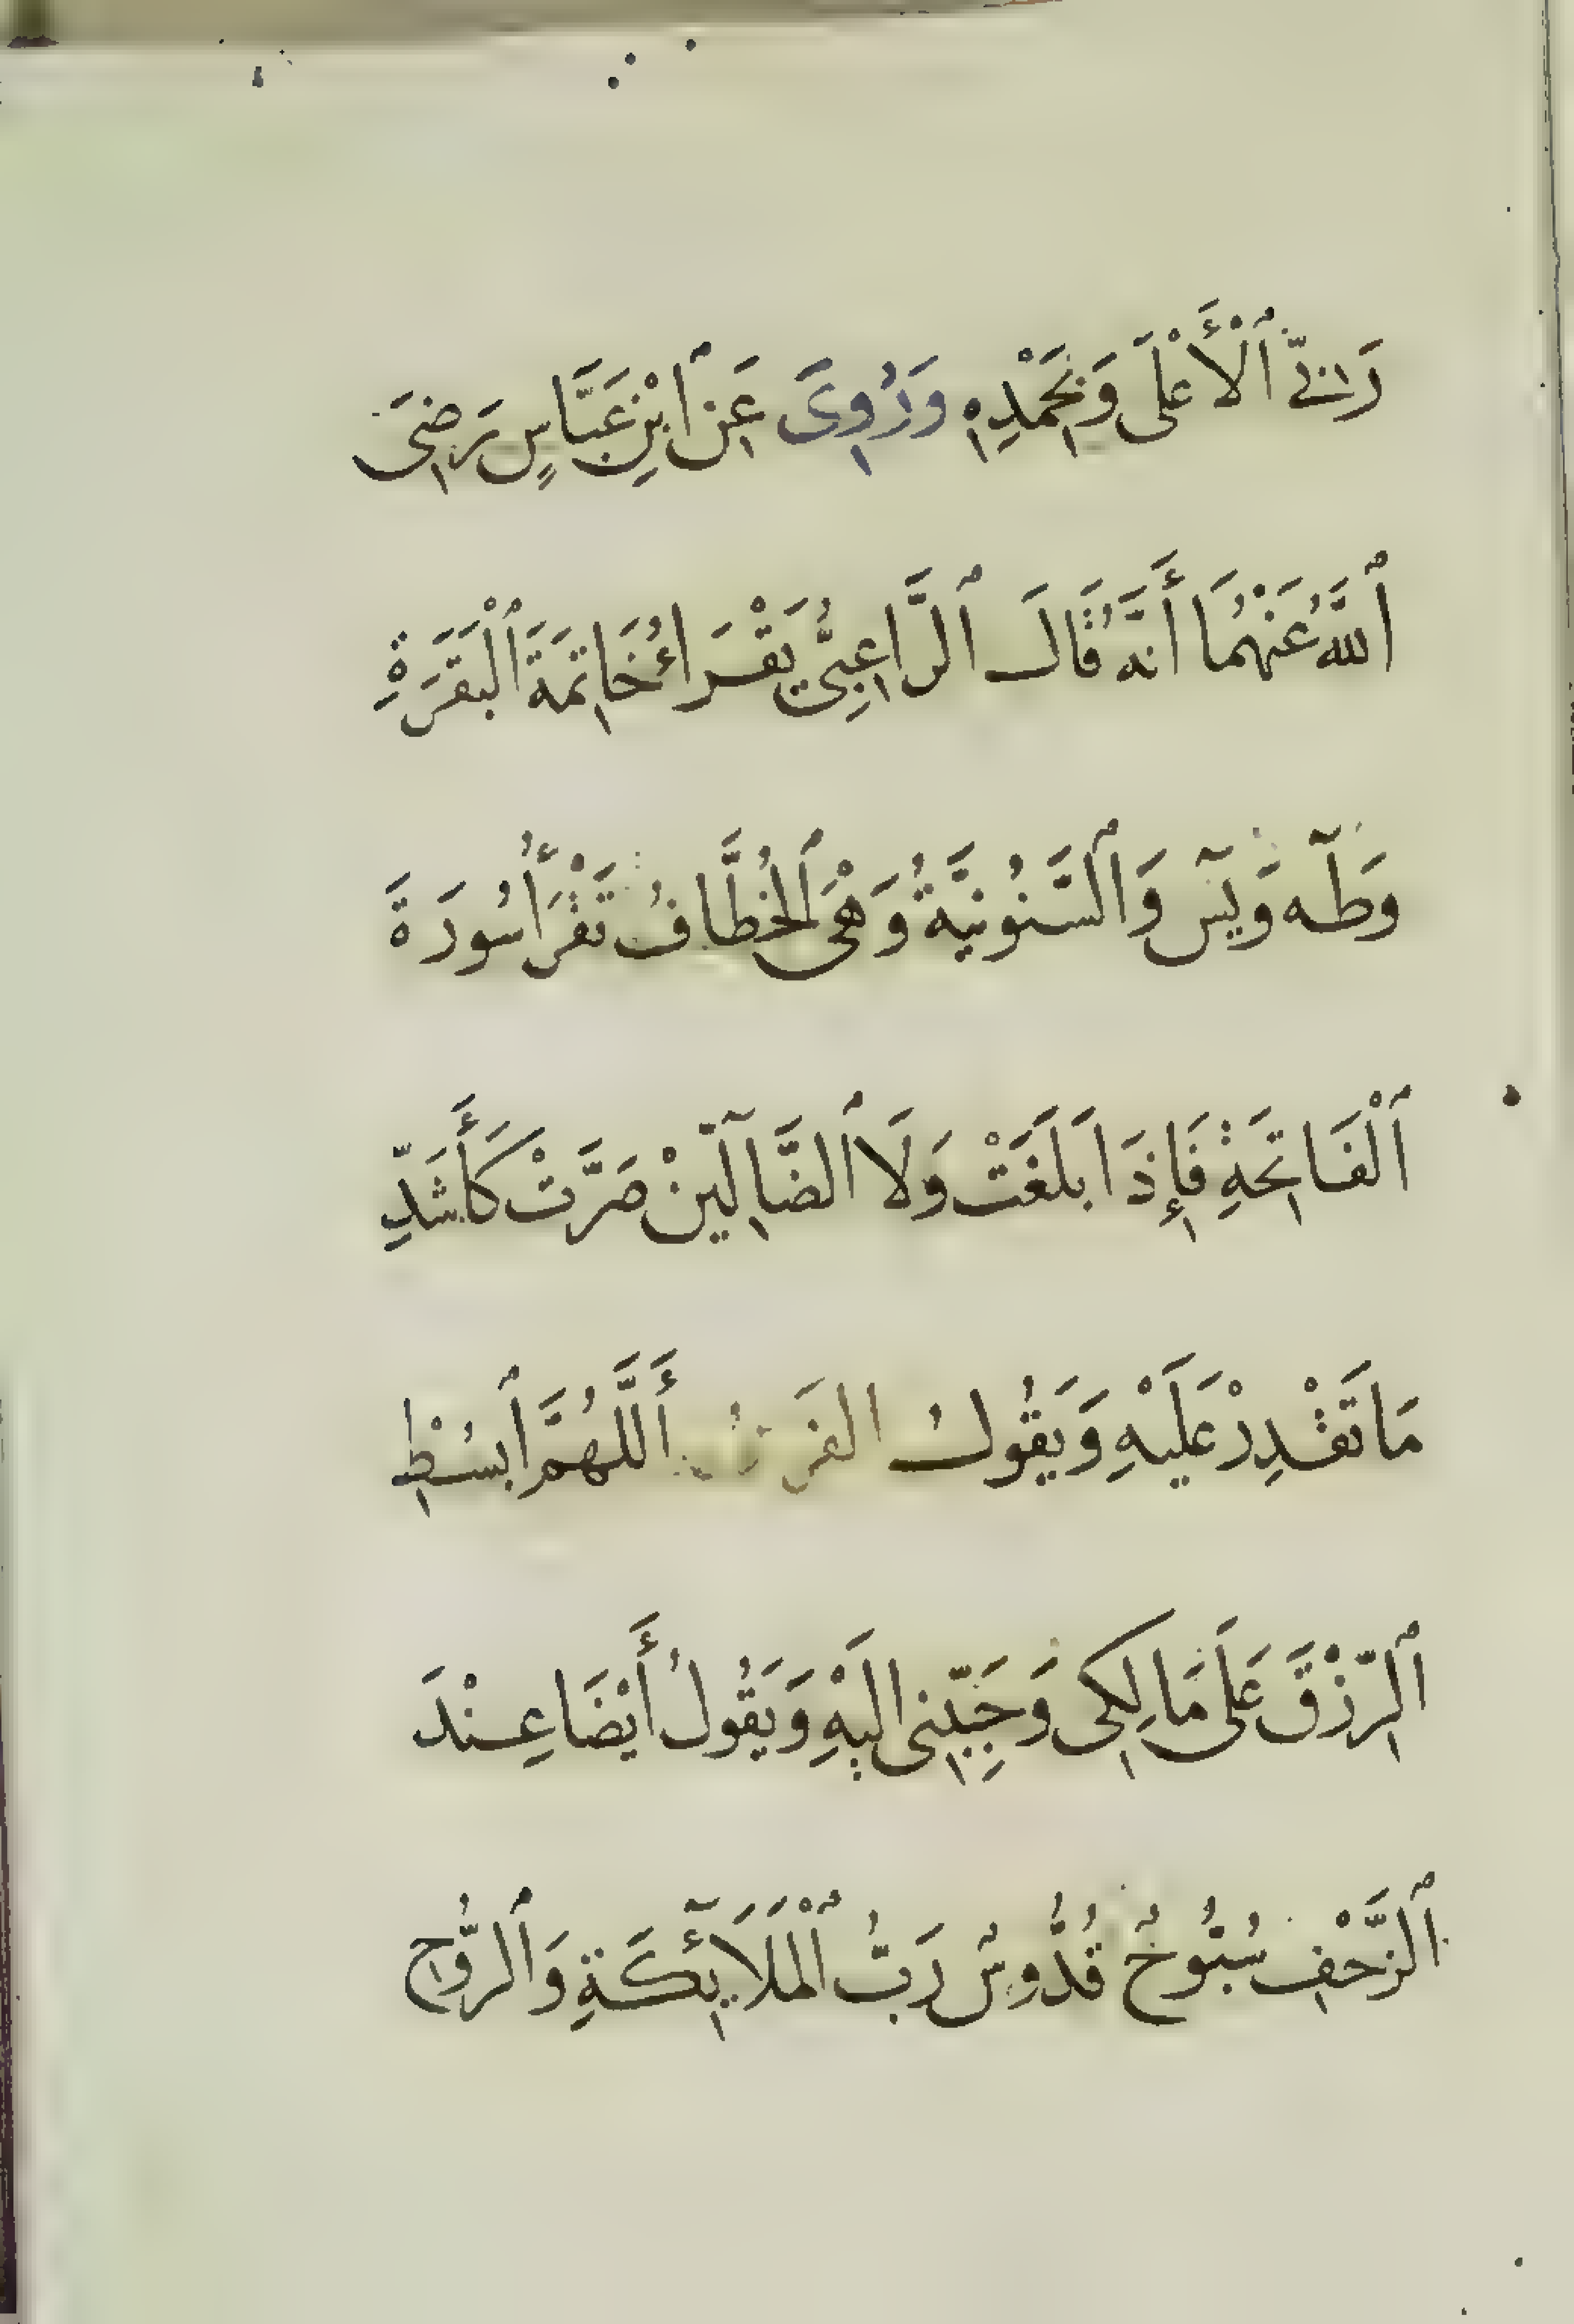 رَبِّىَ ٱلْأَعْلَى وَبِحَمْدِهِ وَرُوِىَ عَنِ ٱبْنِ عَبَّاسٍ رَضِىَ
ٱللَّهُ عَنْهُمَا أَنَّهُ قَالَ ٱلرَّاعِبِىُّ يَقْرَاءُ خَاتِمَةَ ٱلْبَقَرَةِ
وَطٓهٰ وَيٓسٓ وَٱلسَّنُونِيَّةُ وَهْىَ ٱلْخُطَّافُ تَقْرَأُ سُورَةَ
ٱلْفَاتِحَةِ فَإِذَا بَلَغَتْ وَلَا ٱلضَّآلِّينْ صَرَّتْ كَأَشَدِّ
مَا تَقْدِرْ عَلَيْهِ وَيَقُولُ الفَرَسُ أَللَّهُمَّ ٱبْسُطِ
ٱلرِّزْقَ عَلَى مَالِكِى وَحَبِّبْنِى إِلَيْهِ وَيَقُولُ أَيْضَا عِنْدَ
ٱلزَّحْفِ سُبُّوحٌ قُدُّوسٌ رَبُّ ٱلْمَلَآئِكَةِ وَٱلرُّوحِ